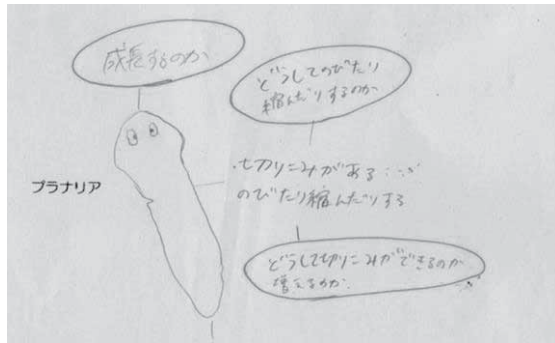 成長するのか
どうしてのびたり
縮んだりするのか
プラナリア
・切りこみがある
のびたり縮んだりする
どうして切りこみができるのか
増えるのか